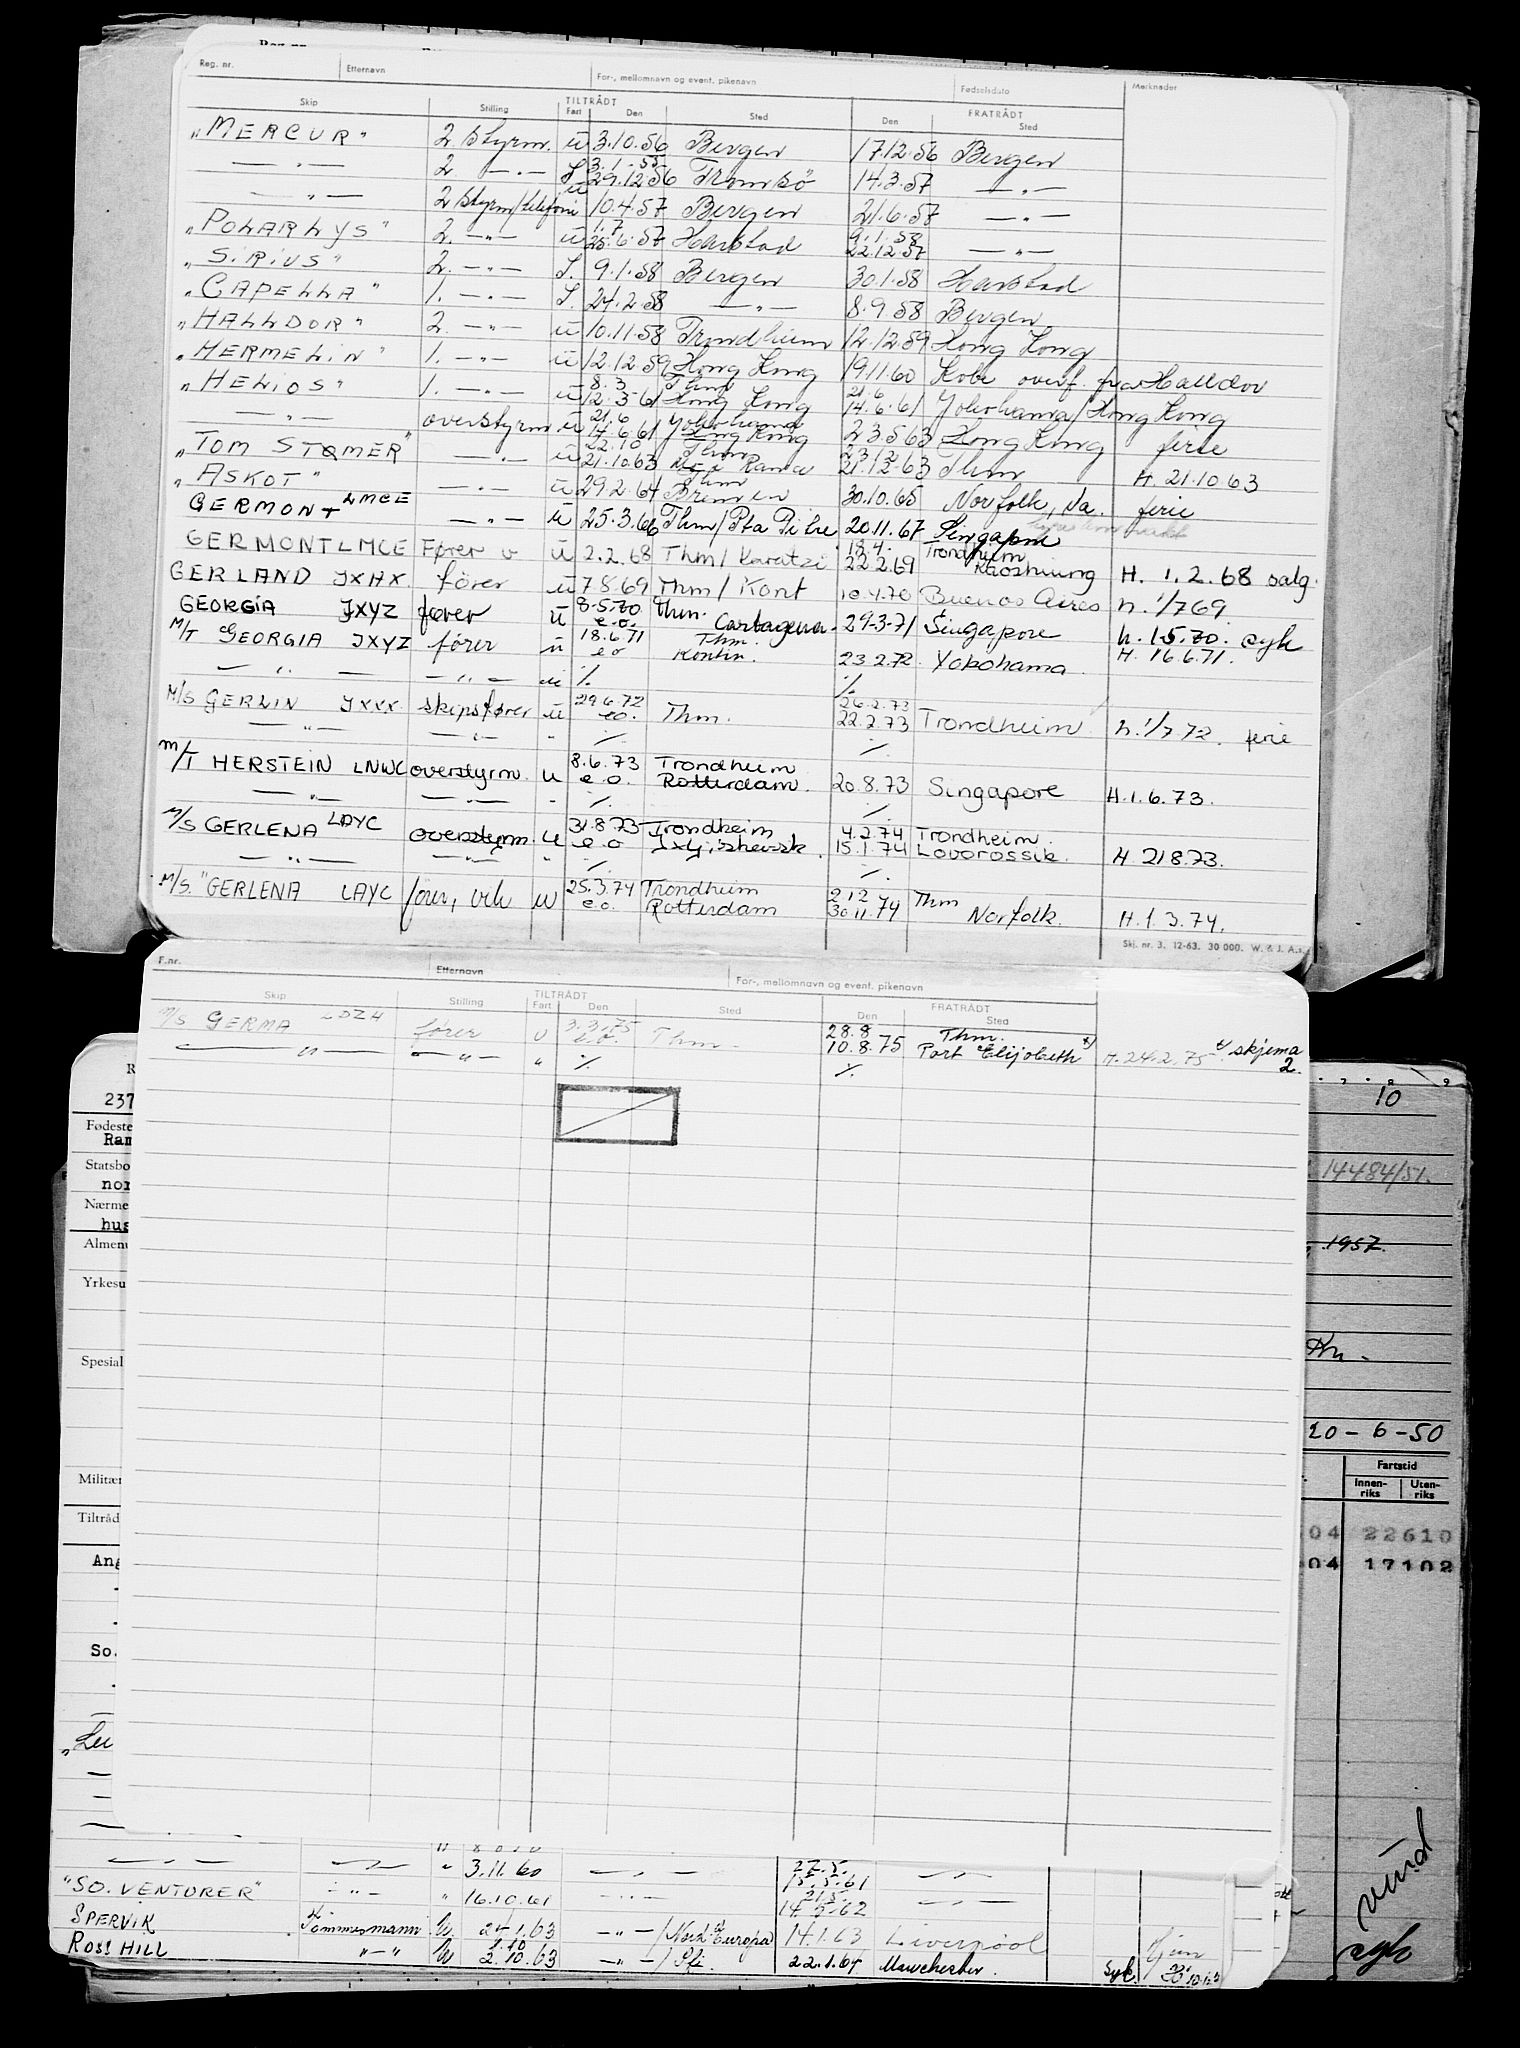 Reg. nr. Etternavn For-, mellomnavn og event. pikenavn Fødselsdato Merknader
Skip Stilling TILTRÅDT FRATRÅDT
Fart Den Sted Den Sted
"MERCUR" 2 Styrm. u 3.10.56 Bergen 17.12.56 Bergen
— " — 2 — " — 29.12.56 Tromsø 14.3.57 — " —
— " — 2 Styrm/telefoni u 10.4.57 Bergen 21.6.57 — " —
"POLARLYS" 2. — " — u 1.7 25.6.57 Harstad 9.1.58 22.12.57 — " —
"SIRIUS" 2. — " — I. 9.1.58 Bergen 30.1.58 Harstad
"CAPELLA" 1. — " — I. 24.2.58 — " — 8.9.58 Bergen
"HALLDOR" 2. — " — u 10.11.58 Trondheim 12.12.59 Hong Kong
"HERMELIN" 1. — " — u 12.12.59 Hong Kong 19.11.60 Kobe overf. fra Halldor
"HELIOS" 1. — " — u 8.3 12.3.61 Thm Hong Kong 21.6 14.6.61 Yokohama/Hong Kong
— " — overstyrm u 21.6 14.6.61 Yokohama Hong Kong 23.5.63 Hong Kong ferie
"TOM STOMER" — " — u 22.10 21.10.63 Thm 23.12 21.12.63 Thm H. 21.10.63
"ASKOT" — " — u 29.2.64 Thm Bremen 30.10.65 Norfolk, Va. ferie
GERMONT LMCE — " — u 25.3.66 Thm/Pta 20.11.67 Singapore
GERMONT LMCE Fører v u 2.2.68 Thm/Karatzi 18.4. 22.2.69 Trondheim Kaoshiung H. 1.2.68 salg.
GERLAND JXHX. fører u 7.8.69 Thm/Kont 10.4.70 Buenos Aires h. 1/7 69.
GEORGIA JXYZ fører u 8.5.70 e.o. Thm. Cartagena. 29-3-71 Singapore h. 1.5.70. syk
M/T GEORGIA JXYZ fører u 18.6.71 e o Thm. Kontin. 23.2.72 Yokohama H. 16.6.71.
— " — — " — u ./. ./.
M/S GERLIN JXVX. skipsfører u 29.6.72 e.o. Thm. 26.2.73 22.2.73 Trondheim h. 1/7 72. ferie
— " — — " — " ./. ./.
M/T HERSTEIN LNWC overstyrm. u 8.6.73 e.o. Trondheim Rotterdam. 20.8.73 Singapore H.1.6.73.
— " — — " — " ./. ./.
M/S GERLENA LAYC overstyrm. u 31.8.73 e.o Trondheim 4.2.74 15.1.74 Trondheim. Lovorossik. H. 21.8.73.
— " — — " — " ./. ./.
M/S. "GERLENA LAYC fører, vik u 25.3.74 e.o. Trondheim Rotterdam 2.12 30.11.74 Thm Norfolk. H. 1.3.74.
Skj. nr. 3. 12-63. 30 000. W. & J. A.s.
F.nr. Etternavn For-, mellomnavn og event. pikenavn
Skip Stilling TILTRÅDT FRATRÅDT
Fart Den Sted Den Sted
M/S GERMA LDZH fører U 3.3.75 e.o. Thm. 28.8 10.8.75 Thm. Port Elijobeth x) H. 24.2.75 x) skjema 2.
— " — — " — " ./. ./.
237
Fødeste
Ran
Statsbo
nor
Nærme
hus
Almenu
Yrkesu
Spesial
Militær
Tiltråd
Ang
So.
"Lu
10
14484/51.
1957.
20-6-50
Fartstid
Innenriks Utenriks
04 22610
04 17102
syk
— " — — " — " 3.11.60 — " — 27.5. 15.5.61 — " —
"SO. VENTURER" — " — " 16.10.61 — " — 21.5. 14.5.62 — " —
SPERVIK Tømmermann U 24.1.63 — " — / Nord Europa 14.1.63 Liverpool
ROSS HILL — " — U 2.10.63 — " — / 22.1.64 Manchester. Syk.